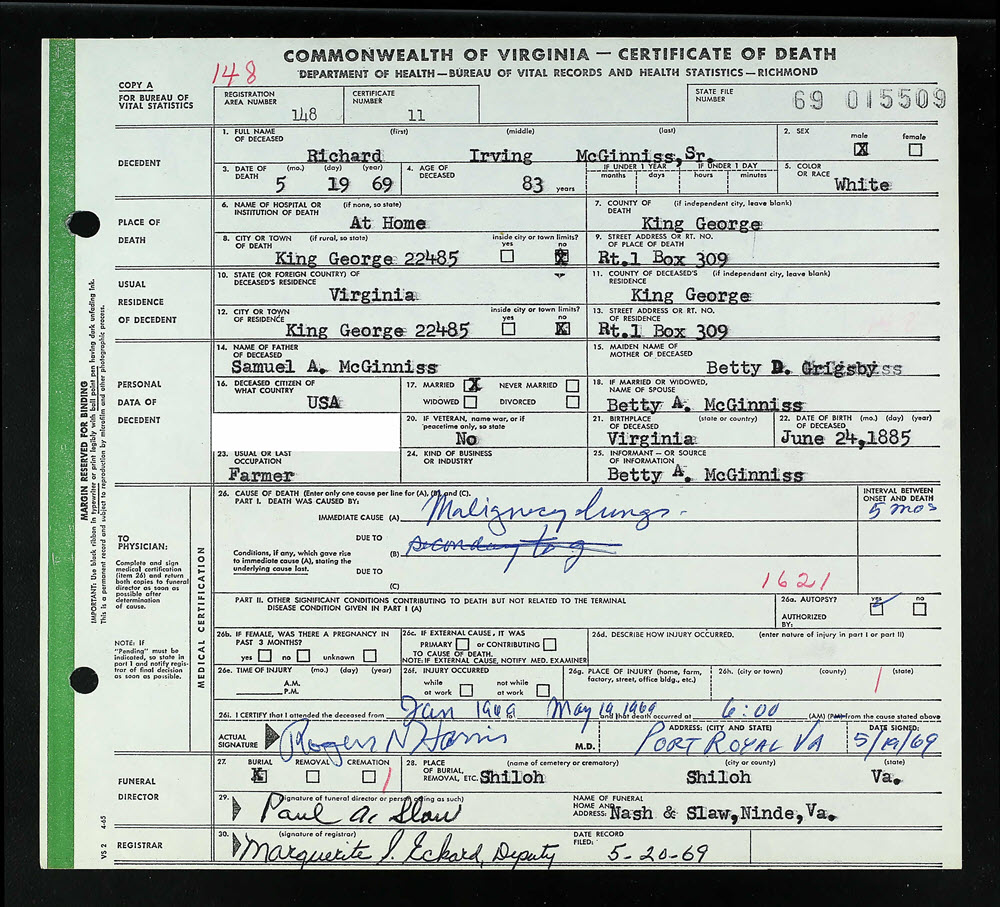 COMMONWEALTH OF VIRGINIA — CERTIFICATE OF DEATH
DEPARTMENT OF HEALTH—BUREAU OF VITAL RECORDS AND HEALTH STATISTICS—RICHMOND
148
COPY A
FOR BUREAU OF
VITAL STATISTICS
REGISTRATION AREA NUMBER 148
CERTIFICATE NUMBER 11
STATE FILE NUMBER 69 015509
DECEDENT
1. FULL NAME OF DECEASED (first) (middle) (last)
Richard Irving McGinniss, Sr.
2. SEX male X female
3. DATE OF DEATH (mo.) (day) (year) 5 19 69
4. AGE OF DECEASED 83 years
IF UNDER 1 YEAR months days
IF UNDER 1 DAY hours minutes
5. COLOR OR RACE White
PLACE OF DEATH
6. NAME OF HOSPITAL OR INSTITUTION OF DEATH (if none, so state)
At Home
7. COUNTY OF DEATH (if independent city, leave blank)
King George
8. CITY OR TOWN OF DEATH (if rural, so state) inside city or town limits? yes no X
King George 22485
9. STREET ADDRESS OR RT. NO. OF PLACE OF DEATH
Rt.1 Box 309
USUAL RESIDENCE OF DECEDENT
10. STATE (OR FOREIGN COUNTRY) OF DECEASED'S RESIDENCE
Virginia
11. COUNTY OF DECEASED'S RESIDENCE (if independent city, leave blank)
King George
12. CITY OR TOWN OF RESIDENCE inside city or town limits? yes no X
King George 22485
13. STREET ADDRESS OR RT. NO. OF RESIDENCE
Rt.1 Box 309
PERSONAL DATA OF DECEDENT
14. NAME OF FATHER OF DECEASED
Samuel A. McGinniss
15. MAIDEN NAME OF MOTHER OF DECEASED
Betty D. Grigsby
16. DECEASED CITIZEN OF WHAT COUNTRY
USA
17. MARRIED X NEVER MARRIED
WIDOWED DIVORCED
18. IF MARRIED OR WIDOWED, NAME OF SPOUSE
Betty A. McGinniss
20. IF VETERAN, name war, or if peacetime only, so state
No
21. BIRTHPLACE OF DECEASED (state or country)
Virginia
22. DATE OF BIRTH OF DECEASED (mo.) (day) (year)
June 24,1885
23. USUAL OR LAST OCCUPATION
Farmer
24. KIND OF BUSINESS OR INDUSTRY
25. INFORMANT – OR SOURCE OF INFORMATION
Betty A. McGinniss
MARGIN RESERVED FOR BINDING
IMPORTANT: Use black ribbon in typewriter or print legibly with ball point pen having dark unfading ink.
This is a permanent record and subject to reproduction by microfilm and other photographic process.
TO PHYSICIAN:
Complete and sign
medical certification
(item 26) and return
both copies to funeral
director as soon as
possible after
determination
of cause.
NOTE: If
"Pending" must be
indicated, so state in
part I and notify regis-
trar of final decision
as soon as possible.
MEDICAL CERTIFICATION
26. CAUSE OF DEATH (Enter only one cause per line for (A), (B), and (C).
PART I. DEATH WAS CAUSED BY:
INTERVAL BETWEEN ONSET AND DEATH
IMMEDIATE CAUSE (A) Malignancy lungs 5 mos
DUE TO
(B) secondary to
Conditions, if any, which gave rise
to immediate cause (A), stating the
underlying cause last.
DUE TO
(C)
1621
PART II. OTHER SIGNIFICANT CONDITIONS CONTRIBUTING TO DEATH BUT NOT RELATED TO THE TERMINAL
DISEASE CONDITION GIVEN IN PART I (A)
26a. AUTOPSY? yes no
AUTHORIZED BY:
26b. IF FEMALE, WAS THERE A PREGNANCY IN PAST 3 MONTHS?
yes no unknown
26c. IF EXTERNAL CAUSE, IT WAS
PRIMARY or CONTRIBUTING
TO CAUSE OF DEATH.
NOTE: IF EXTERNAL CAUSE, NOTIFY MED. EXAMINER
26d. DESCRIBE HOW INJURY OCCURRED. (enter nature of injury in part I or part II)
26e. TIME OF INJURY (mo.) (day) (year)
A.M.
P.M.
26f. INJURY OCCURRED
while at work not while at work
26g. PLACE OF INJURY (home, farm, factory, street, office bldg., etc.)
26h. (city or town) (county) (state)
26i. I CERTIFY that I attended the deceased from Jan 1969 to May 19, 1969 and that death occurred at 6:00 (AM) (PM) from the cause stated above
ACTUAL SIGNATURE Rogers N Harris M.D.
ADDRESS: (CITY AND STATE) PORT ROYAL VA
DATE SIGNED: 5/19/69
FUNERAL DIRECTOR
27. BURIAL X REMOVAL CREMATION
28. PLACE OF BURIAL, REMOVAL, ETC. (name of cemetery or crematory) (city or county) (state)
Shiloh Shiloh Va.
29. (signature of funeral director or person acting as such)
Paul A. Slaw
NAME OF FUNERAL HOME AND ADDRESS: Nash & Slaw, Ninde, Va.
REGISTRAR
30. (signature of registrar)
Marguerite S. Eckard, Deputy
DATE RECORD FILED: 5-20-69
VS 2 4-65